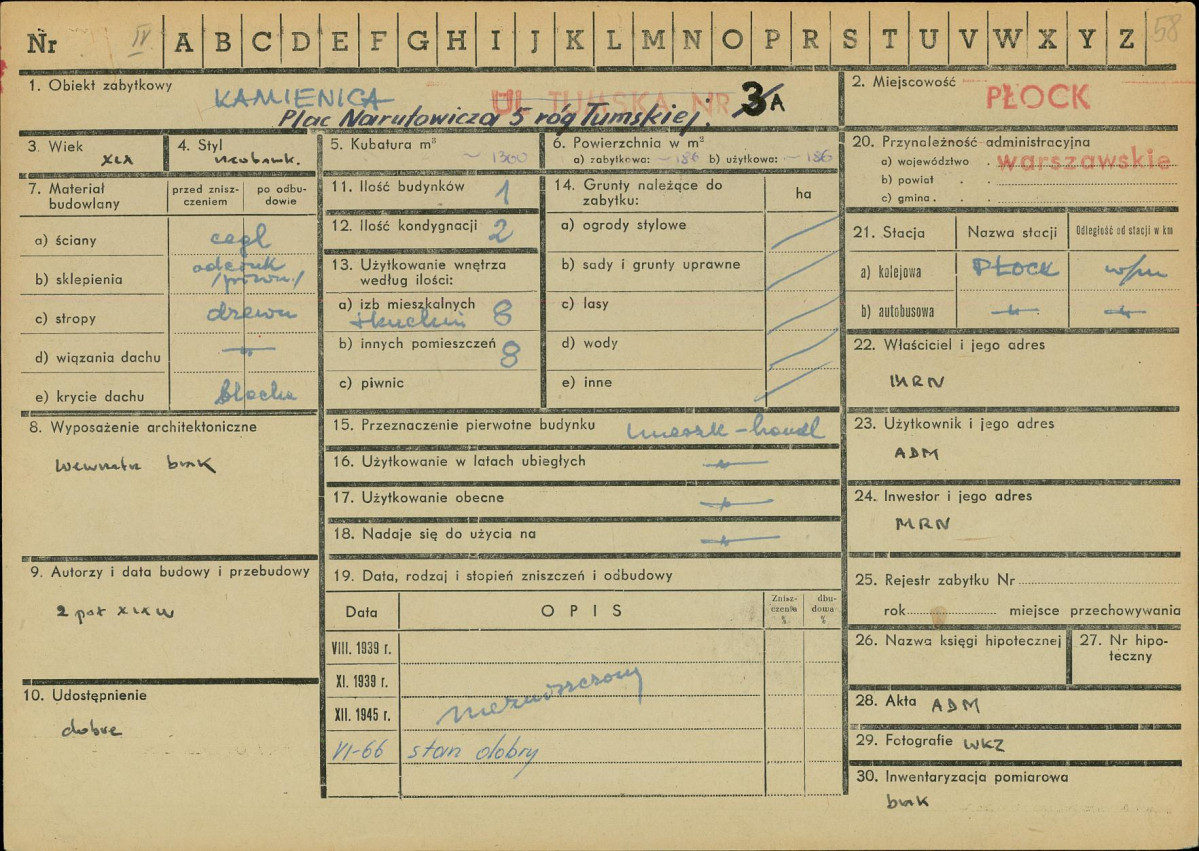 Nr IV A B C D E F G H I J K L M N O P R S T U V W X Y Z 58
1. Obiekt zabytkowy KAMIENICA UL. TUMSKA NR 3A
Plac Narutowicza 5 róg Tumskiej.
2. Miejscowość PŁOCK
3. Wiek XIX
4. Styl neobarok.
5. Kubatura m³ ~ 1300
6. Powierzchnia w m²
a) zabytkowa: ~186 b) użytkowa: ~186
20. Przynależność administracyjna
a) województwo warszawskie
b) powiat
c) gmina
7. Materiał budowlany
przed zniszczeniem
po odbudowie
a) ściany cegł
b) sklepienia odcink
/piwn/
c) stropy drzewn
d) wiązania dachu -"-
e) krycie dachu blacha
11. Ilość budynków 1
12. Ilość kondygnacji 2
13. Użytkowanie wnętrza
według ilości:
a) izb mieszkalnych
+kuchni 8
b) innych pomieszczeń 8
c) piwnic
14. Grunty należące do
zabytku:
ha
a) ogrody stylowe
b) sady i grunty uprawne
c) lasy
d) wody
e) inne
21. Stacja Nazwa stacji Odległość od stacji w km
a) kolejowa PŁOCK w/m
b) autobusowa -"- -"-
22. Właściciel i jego adres
MRN
8. Wyposażenie architektoniczne
wewnątrz brak
15. Przeznaczenie pierwotne budynku mieszk-handl
16. Użytkowanie w latach ubiegłych -"-
17. Użytkowanie obecne -"-
18. Nadaje się do użycia na -"-
23. Użytkownik i jego adres
ADM
24. Inwestor i jego adres
MRN
9. Autorzy i data budowy i przebudowy
2 poł XIX w
10. Udostępnienie
dobre
19. Data, rodzaj i stopień zniszczeń i odbudowy
Data OPIS Zniszczenia % dbudowa %
VIII. 1939 r.
XI. 1939 r. niezniszczony
XII. 1945 r.
VI-66 stan dobry
25. Rejestr zabytku Nr
rok miejsce przechowywania
26. Nazwa księgi hipotecznej
27. Nr hipoteczny
28. Akta ADM
29. Fotografie WKZ
30. Inwentaryzacja pomiarowa
brak